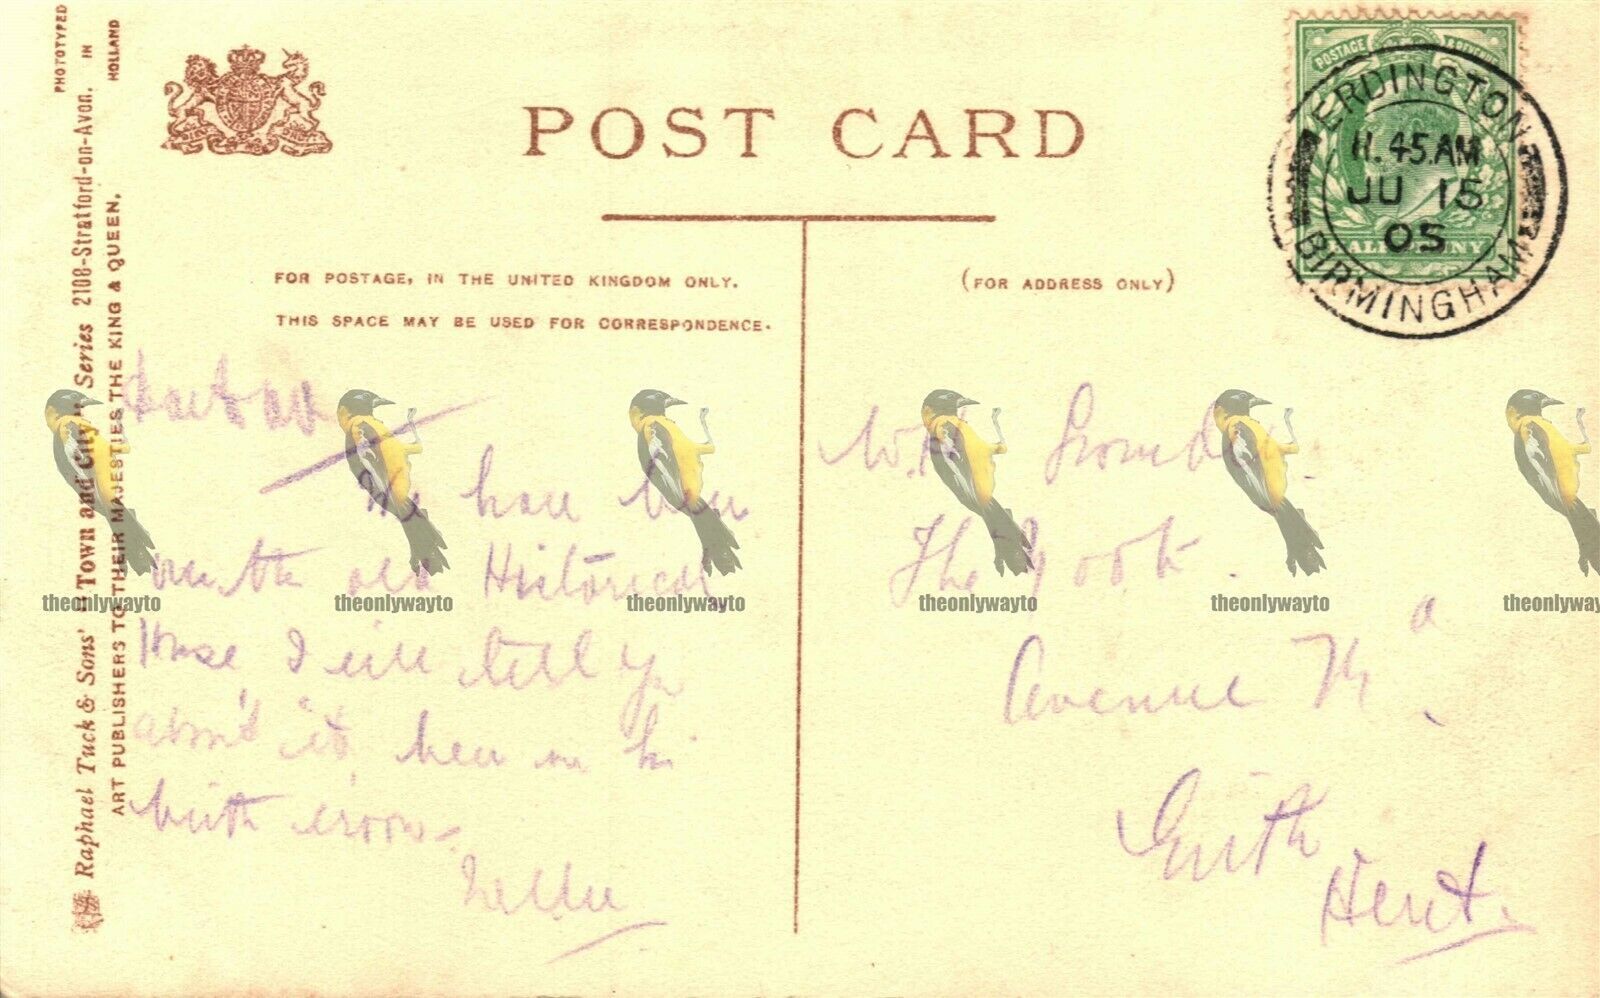 PHOTOTYPED IN HOLLAND
Raphael Tuck & Sons' "Town and City" Series 2108-Stratford-on-Avon.
ART PUBLISHERS TO THEIR MAJESTIES THE KING & QUEEN.
POST CARD
POSTAGE & REVENUE
ERDINGTON
11.45.AM
JU 15
05
BIRMINGHAM
HALFPENNY
FOR POSTAGE, IN THE UNITED KINGDOM ONLY.
THIS SPACE MAY BE USED FOR CORRESPONDENCE.
(FOR ADDRESS ONLY)
We have been
old Historical
House I will tell you
about it, been in his
birth room
Nellie
W.H.
The Nook.
Avenue Rd
Erith
Kent.
theonlywayto
theonlywayto
theonlywayto
theonlywayto
theonlywayto
theonlyway